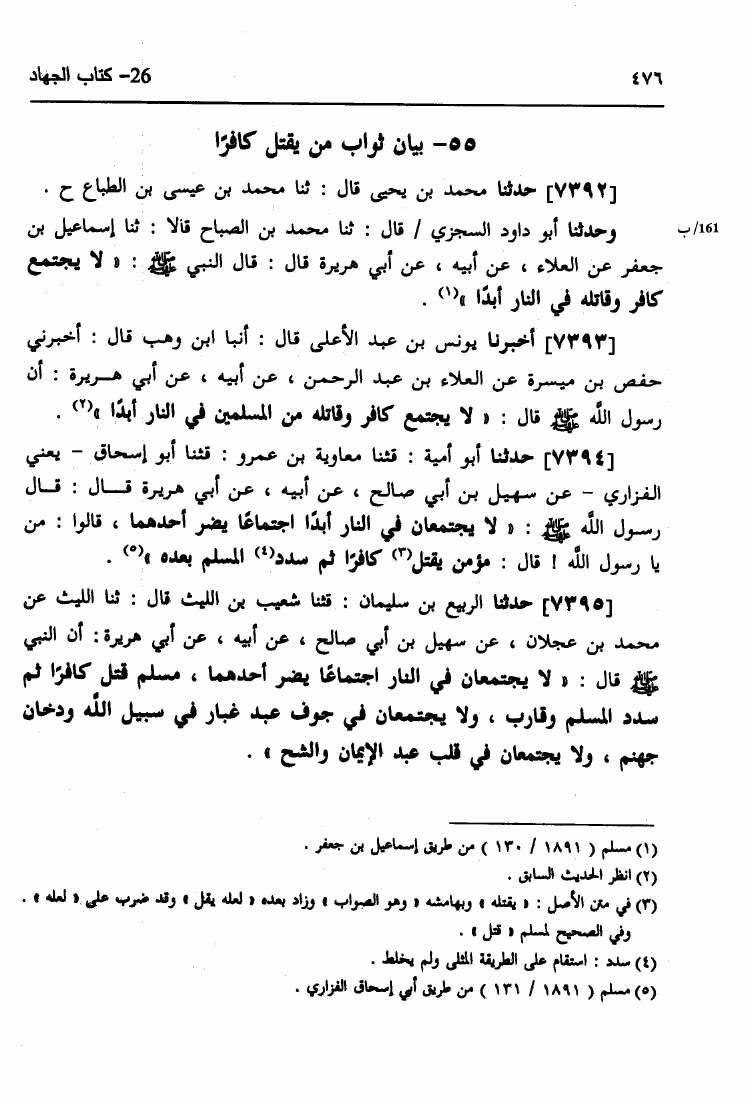 ٤٧٦
26- كتاب الجهاد
٥٥- بيان ثواب من يقتل كافرًا
[٧٣٩٢] حدثنا محمد بن يحيى قال : ثنا محمد بن عيسى بن الطباع ح .
161/ب
وحدثنا أبو داود السجزي / قال : ثنا محمد بن الصباح قالا : ثنا إسماعيل بن
جعفر عن العلاء ، عن أبيه ، عن أبي هريرة قال : قال النبي ﷺ : « لا يجتمع
كافر وقاتله في النار أبدًا »(١) .
[٧٣٩٣] أخبرنا يونس بن عبد الأعلى قال : أنبا ابن وهب قال : أخبرني
حفص بن ميسرة عن العلاء بن عبد الرحمن ، عن أبيه ، عن أبي هـريرة : أن
رسول اللَّه ﷺ قال : « لا يجتمع كافر وقاتله من المسلمين في النار أبدًا »(٢) .
[٧٣٩٤] حدثنا أبو أمية : قثنا معاوية بن عمرو : قثنا أبو إسحاق - يعني
الفزاري - عن سهيل بن أبي صالح ، عن أبيه ، عن أبي هريرة قـال : قـال
رسول اللَّه ﷺ : « لا يجتمعان في النار أبدًا اجتماعًا يضر أحدهما ، قالوا : من
يا رسول اللَّه ! قال : مؤمن يقتل(٣) كافرًا ثم سدد(٤) المسلم بعده »(٥) .
[٧٣٩٥] حدثنا الربيع بن سليمان : قثنا شعيب بن الليث قال : ثنا الليث عن
محمد بن عجلان ، عن سهيل بن أبي صالح ، عن أبيه ، عن أبي هريرة : أن النبي
ﷺ قال : « لا يجتمعان في النار اجتماعًا يضر أحدهما ، مسلم قتل كافرًا ثم
سدد المسلم وقارب ، ولا يجتمعان في جوف عبد غبار في سبيل اللَّه ودخان
جهنم ، ولا يجتمعان في قلب عبد الإيمان والشح » .
(١) مسلم ( ١٨٩١ / ١٣٠ ) من طريق إسماعيل بن جعفر .
(٢) انظر الحديث السابق .
(٣) في متن الأصل : « يقتله » وبهامشه « وهو الصواب » وزاد بعده « لعله يقل » وقد ضرب على « لعله » .
وفي الصحيح لمسلم « قتل » .
(٤) سدد : استقام على الطريقة المثلى ولم يخلط .
(٥) مسلم ( ١٨٩١ / ١٣١ ) من طريق أبي إسحاق الفزاري .